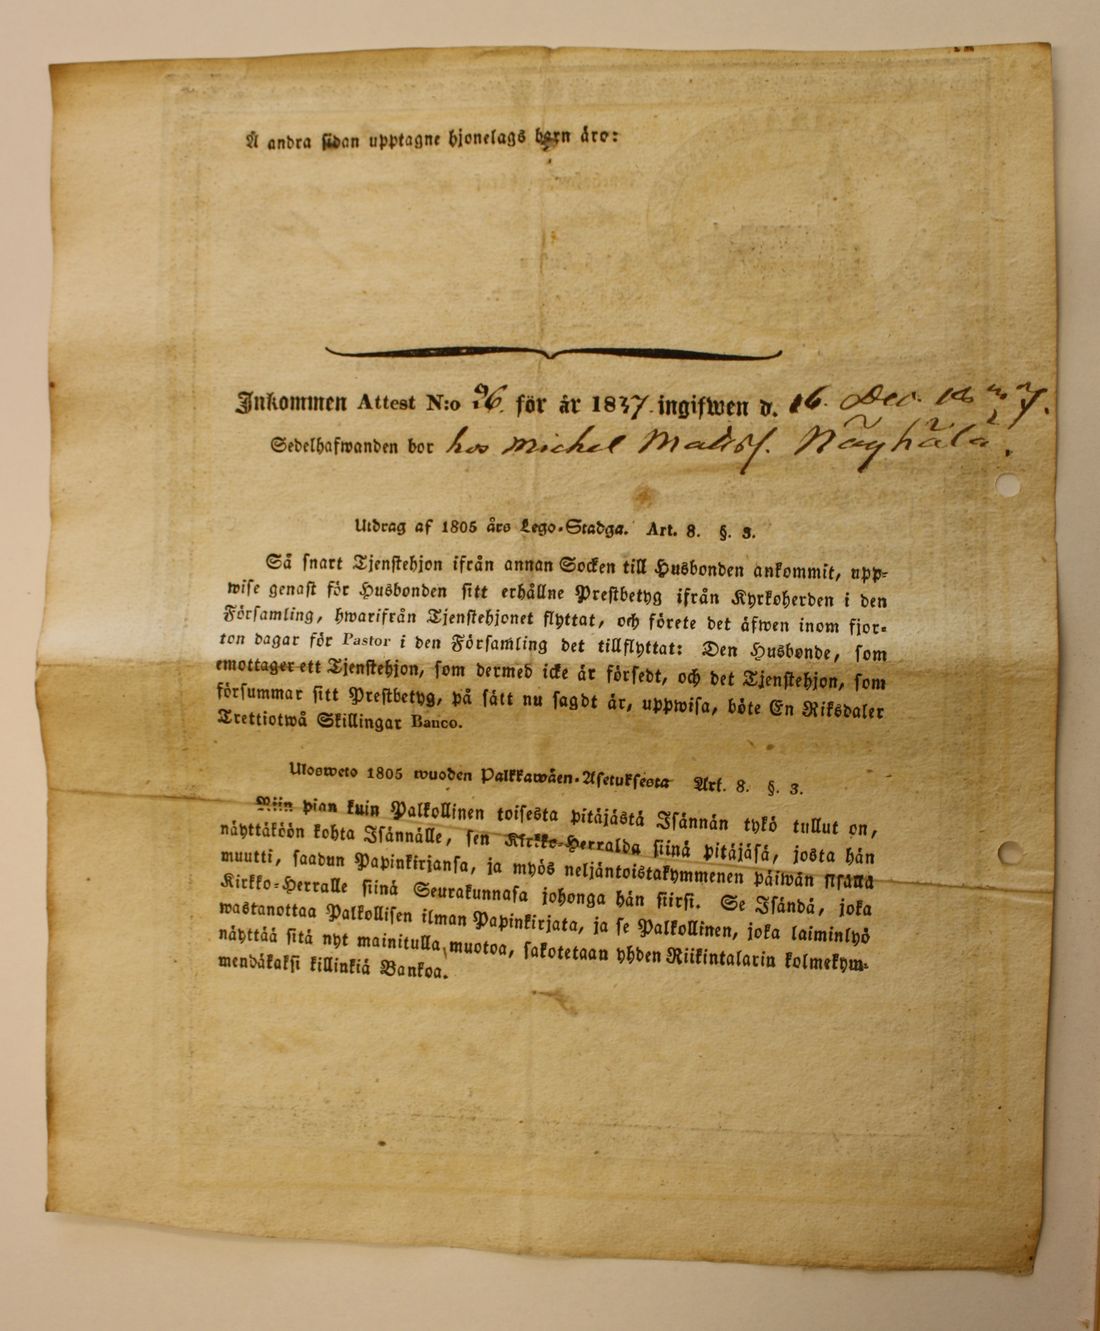 Å andra sidan upptagne hjonelags barn äro:
Inkommen Attest N:o 26. för år 1837. ingifwen d. 16. Dec.
Sedelhafwanden bor hos Michel Matts f.
Utdrag af 1805 års Lego-Stadga. Art. 8. §. 3.
Så snart Tjenstehjon ifrån annan Socken till Husbonden ankommit, upp-
wise genast för Husbonden sitt erhållne Prestbetyg ifrån Kyrkoherden i den
Församling, hwarifrån Tjenstehjonet flyttat, och förete det äfwen inom fjor-
ton dagar för Pastor i den Församling det tillflyttat: Den Husbonde, som
emottager ett Tjenstehjon, som dermed icke är försedt, och det Tjenstehjon, som
försummar sitt Prestbetyg, på sätt nu sagdt är, uppwisa, böte En Riksdaler
Trettiotwå Skillingar Banco.
Ulosweto 1805 wuoden Palkkawäen-Asetuksesta Art. 8. §. 3.
Niin pian kuin Palkollinen toisesta pitäjästä Isännän tykö tullut on,
näyttäköön kohta Isännälle, sen Kirkko-Herralda siinä pitäjäsä, josta hän
muutti, saadun Papinkirjansa, ja myös neljäntoistakymmenen päiwän sisällä
Kirkko-Herralle siinä Seurakunnasa johonga hän siirsi. Se Isändä, joka
wastanottaa Palkollisen ilman Papinkirjata, ja se Palkollinen, joka laiminlyö
näyttää sitä nyt mainitulla muotoa, sakotetaan yhden Riikintalarin kolmekym-
mendäkaksi killinkiä Bankoa.